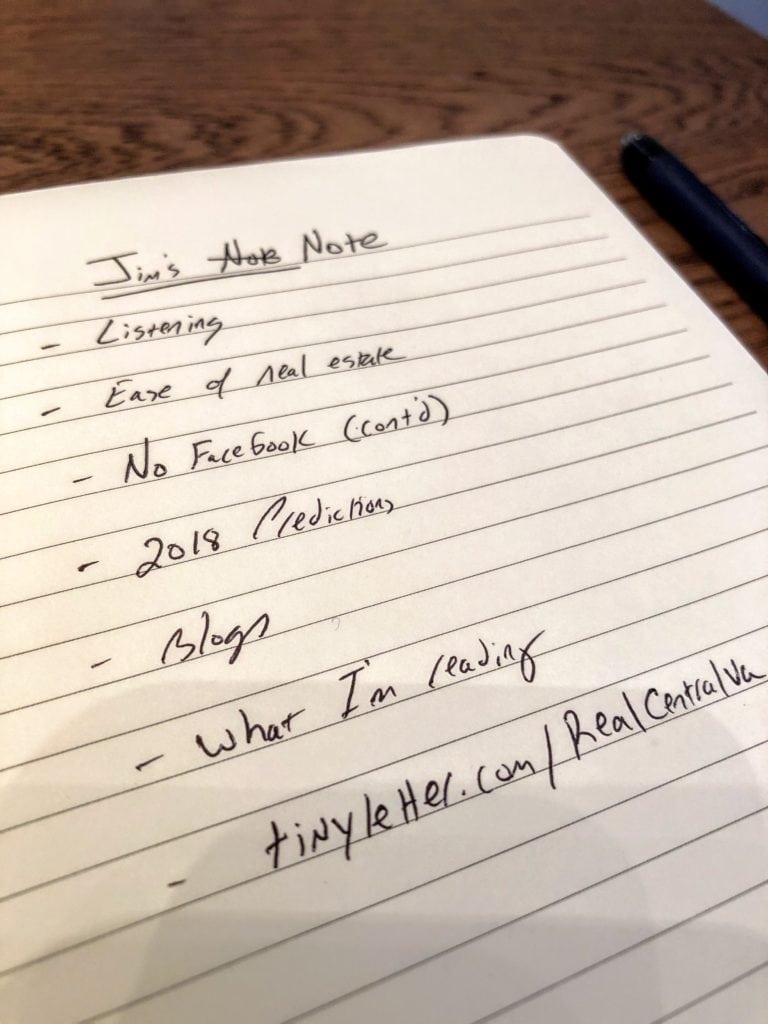 Jim's Note
- Listening
- Ease of real estate
- No Facebook (cont'd)
- 2018 Predictions
- Blogs
- What I'm reading
- tinyletter.com/RealCentralVa